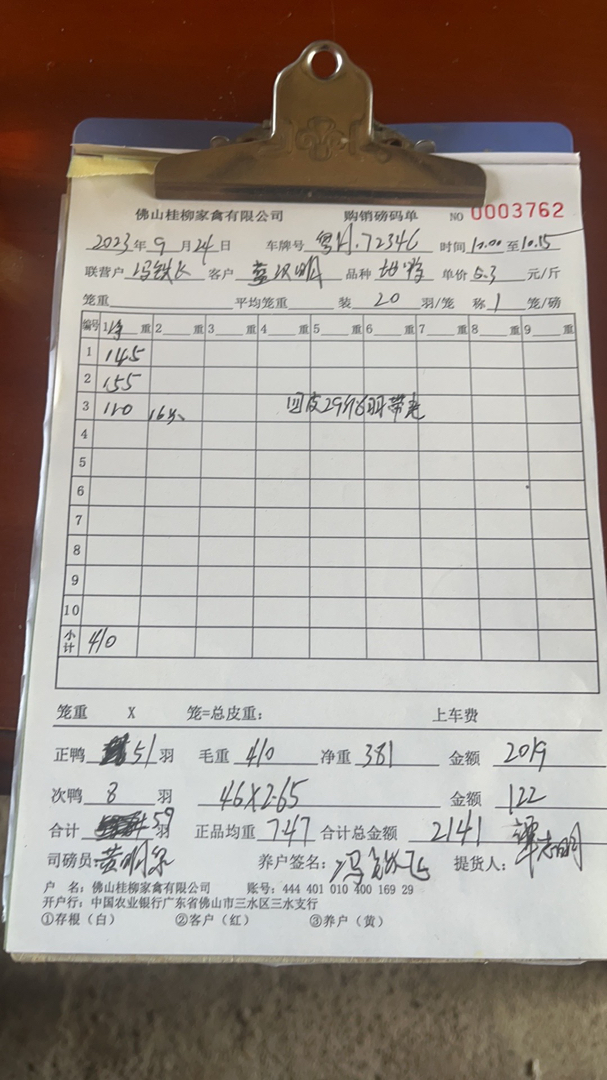 佛山桂柳家禽有限公司 购销磅码单 NO 0003762
2023年9月24日 车牌号 粤H.72346 时间 10.00至10.15
联营户 冯铁飞 客户 蓝汉明 品种 单价 5.3 元/斤
笼重 平均笼重 装 20 羽/笼 称 1 笼/磅
编号 1净重 2 重 3 重 4 重 5 重 6 重 7 重 8 重 9 重
1 145
2 155
3 110 回皮29斤 6羽带走
4
5
6
7
8
9
10
小计 410
笼重 X 笼=总皮重: 上车费
正鸭 51羽 毛重 410 净重 381 金额 2019
次鸭 8 羽 46X2.65 金额 122
合计 59羽 正品均重 7.47 合计总金额 2141
司磅员: 养户签名: 冯铁飞 提货人: 谭志明
户 名: 佛山桂柳家禽有限公司 账号: 444 401 010 400 169 29
开户行: 中国农业银行广东省佛山市三水区三水支行
①存根(白) ②客户(红) ③养户(黄)